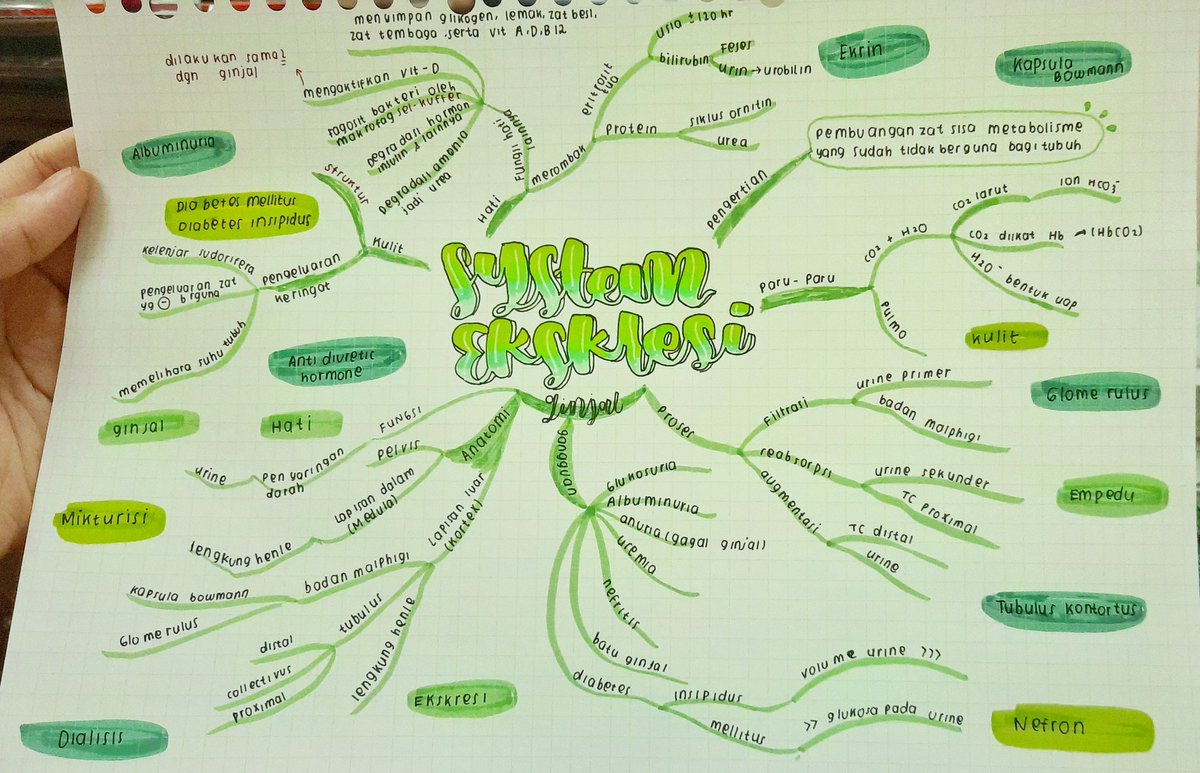 menyimpan glikogen, lemak, zat besi,
zat tembaga serta vit A,D,B12
dilakukan sama²
dgn ginjal
mengaktifkan Vit-D
fagosit bakteri oleh
makrofag sel-kuffer
Degradasi hormon
insulin & lainnya
Degradasi amonia
jadi urea
Fungsi hati
lainnya
Hati
merombak
eritrosit
tua
usia ± 120 hr
bilirubin
Feses
urin → urobilin
protein
siklus ornitin
urea
Ekrin
Kapsula
Bowmann
Pembuangan zat sisa metabolisme
yang sudah tidak berguna bagi tubuh
pengertian
Albuminuria
Diabetes mellitus
Diabetes insipidus
struktur
kulit
pengeluaran
keringat
kelenjar sudorifera
pengeluaran zat
yg ⊖ berguna
memelihara suhu tubuh
System
Ekskresi
paru-paru
CO2 + H2O
CO2 larut
ION HCO3⁻
CO2 diikat Hb → (HbCO2)
H2O⁻ bentuk uap
pulmo
kulit
Anti diuretic
hormone
ginjal
Hati
Glomerulus
Ginjal
FUNGSI
Penyaringan
darah
urine
Anatomi
pelvis
lapisan dalam
(Medula)
lengkung henle
lapisan luar
(kortex)
badan malphigi
kapsula bowmann
Glomerulus
tubulus
distal
collectivus
proximal
lengkung henle
gangguan
Glukosuria
Albuminuria
anuria (gagal ginjal)
uremia
nefritis
batu ginjal
diabetes
insipidus
volume urine >>>
mellitus
>> glukosa pada urine
proses
Filtrasi
urine primer
badan malphigi
reabsorpsi
urine sekunder
TC proximal
augmentasi
TC distal
urine
Mikturisi
Empedu
Tubulus kontortus
Ekskresi
Dialisis
Nefron